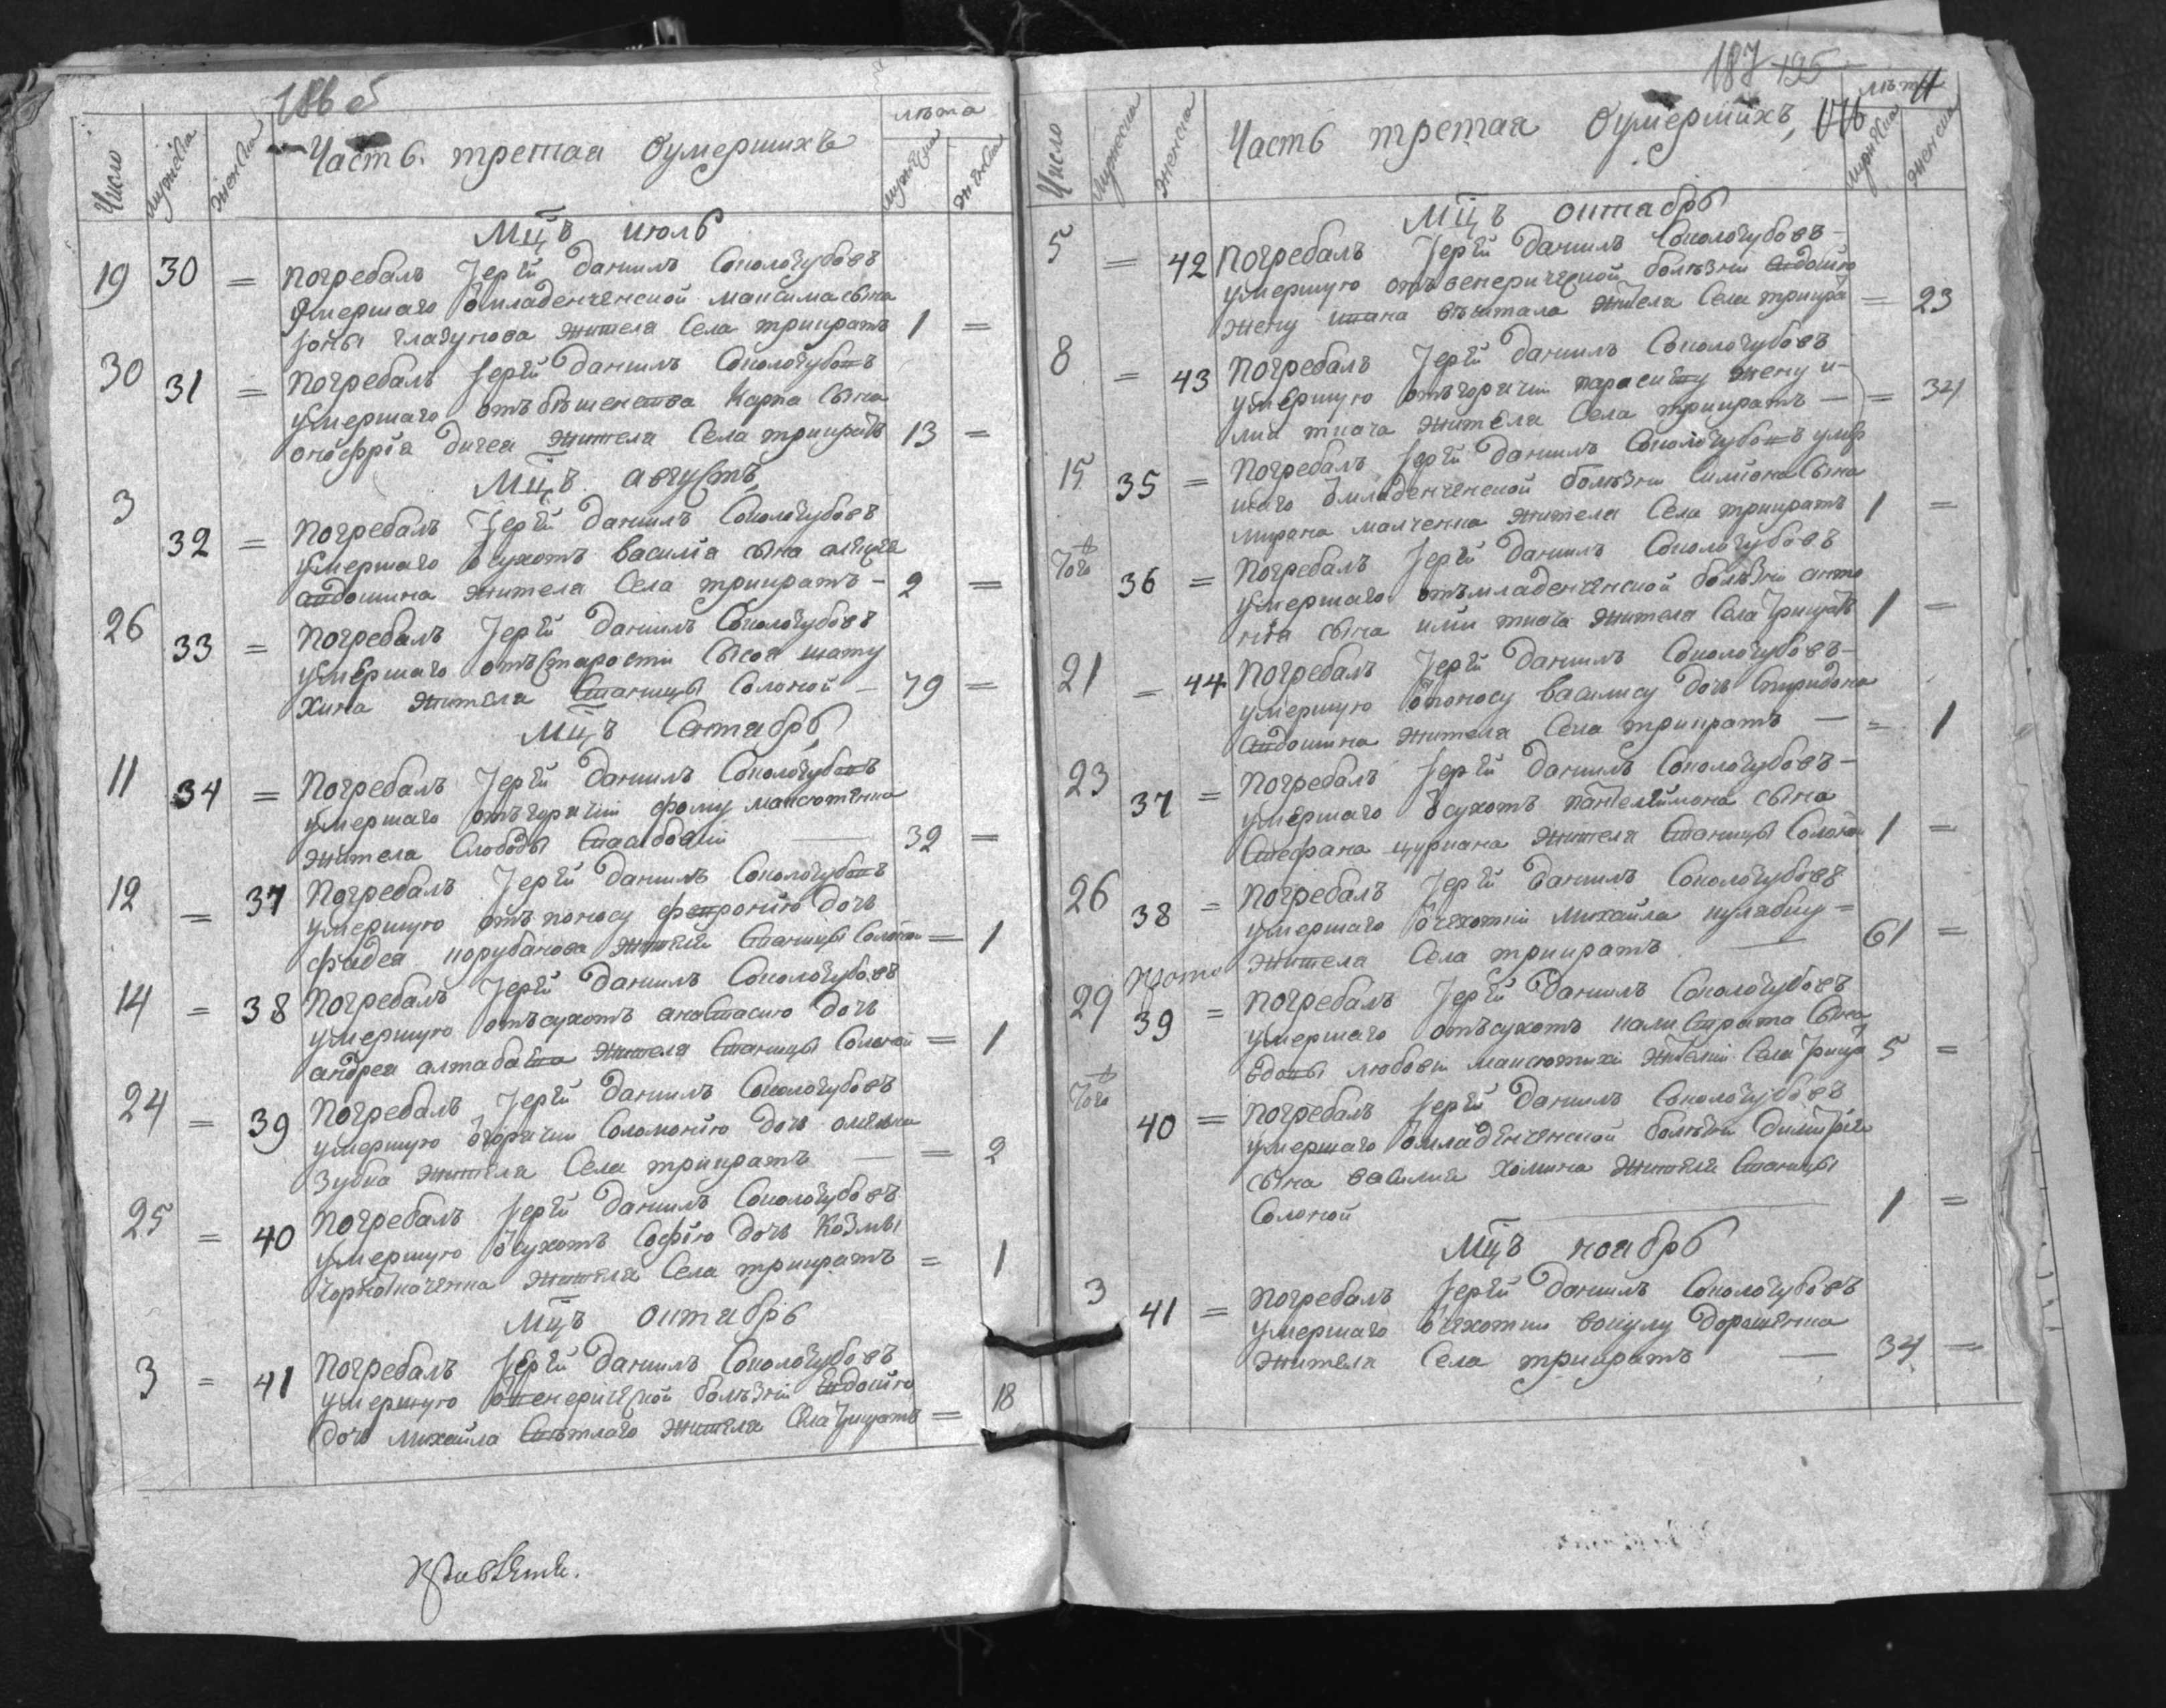 186 об
Часть третая оумершихъ
лѣта
Число
мужеска
женска
мужеска
женска
Мцъ июль
19 30 = Погребалъ Іерѣй данiилъ Сокологубовъ
умершаго ѿмладенческой максима сына
іоны гладунова жителя Села трикратъ 1 =
30 31 = Погребалъ Іерѣй данiилъ Сокологубовъ
умершаго отъ бѣшенства карпа сына
онофрія дичея жителя Села трикратъ 13 =
Мцъ августъ
3 32 = Погребалъ Іерѣй данiилъ Сокологубовъ
умершаго ѿсухотъ василія сына алексѣя
авдошина жителя Села трикратъ - 2 =
26 33 = Погребалъ Іерѣй данiилъ Сокологубовъ
умершаго отъ старости сысоя шату
хина жителя Станицы Солоной - 79 =
Мцъ Сентябрь
11 34 = Погребалъ Іерѣй данiилъ Сокологубовъ
умершаго отъ горячки фому максютенка
жителя Слободы 32 =
12 = 37 Погребалъ Іерѣй данiилъ Сокологубовъ
умершую отъ поносу февронию дочь
фадея корубанова жителя Станицы Солоной = 1
14 = 38 Погребалъ Іерѣй данiилъ Сокологубовъ
умершую отъ сухотъ анастасию дочь
андрея алтабаева жителя Станицы Солоной = 1
24 = 39 Погребалъ Іерѣй данiилъ Сокологубовъ
умершую ѿгорячки Соломонію дочь омелка
Зубка жителя Села трикратъ = 2
25 = 40 Погребалъ Іерѣй данiилъ Сокологубовъ
умершую ѿсухотъ Софію дочь Козмы
жителя Села трикратъ = 1
Мцъ октябрь
3 = 41 Погребалъ Іерѣй данiилъ Сокологубовъ
умершую ѿвенерической болѣзни Евдокию
дочь михайла Свѣтлаго жителя Села трикратъ = 18
187 195
Часть третая оумершихъ,
лѣта
Число
мужеска
женска
мужеска
женска
Мцъ октябрь
5 = 42 Погребалъ Іерѣй данiилъ Сокологубовъ -
умершую отъ венерической болѣзни Евдокию
жену жителя Села трикра = 23
8 = 43 Погребалъ Іерѣй данiилъ Сокологубовъ
умершую отъ горячки параскеву жену и-
лии ткача жителя Села трикратъ - = 34
15 35 = Погребалъ Іерѣй данiилъ Сокологубовъ умер
шаго ѿмладенческой болѣзни симиона сына
мирона малченка жителя Села трикратъ 1 =
Того 36 = Погребалъ Іерѣй данiилъ Сокологубовъ
умершаго отъ младенческой болѣзни анто
нія сына илии ткача жителя Села трикратъ 1 =
21 = 44 Погребалъ Іерѣй данiилъ Сокологубовъ -
умершую ѿпоносу василису дочь спиридона
авдошина жителя Села трикратъ - = 1
23 37 = Погребалъ Іерѣй данiилъ Сокологубовъ -
умершаго ѿсухотъ пантелеимона сына
Стефана цуркана жителя Станицы Солоной 1 =
26 38 = Погребалъ Іерѣй данiилъ Сокологубовъ
умершаго ѿчахотки михайла кулябку =
жителя Села трикратъ 61 =
29 39 = Погребалъ Іерѣй данiилъ Сокологубовъ
умершаго отъ сухотъ калистрата сына
вдовы любови максютихи жителки Села трикра 5 =
Того 40 = Погребалъ Іерѣй данiилъ Сокологубовъ
умершаго ѿмладенческой болѣзни димитрія
сына василия хомина жителя Станицы
Солоной 1 =
Мцъ ноябрь
3 41 = Погребалъ Іерѣй данiилъ Сокологубовъ
умершаго ѿчахотки вакулу дорошенка
жителя Села трикратъ - 34 =